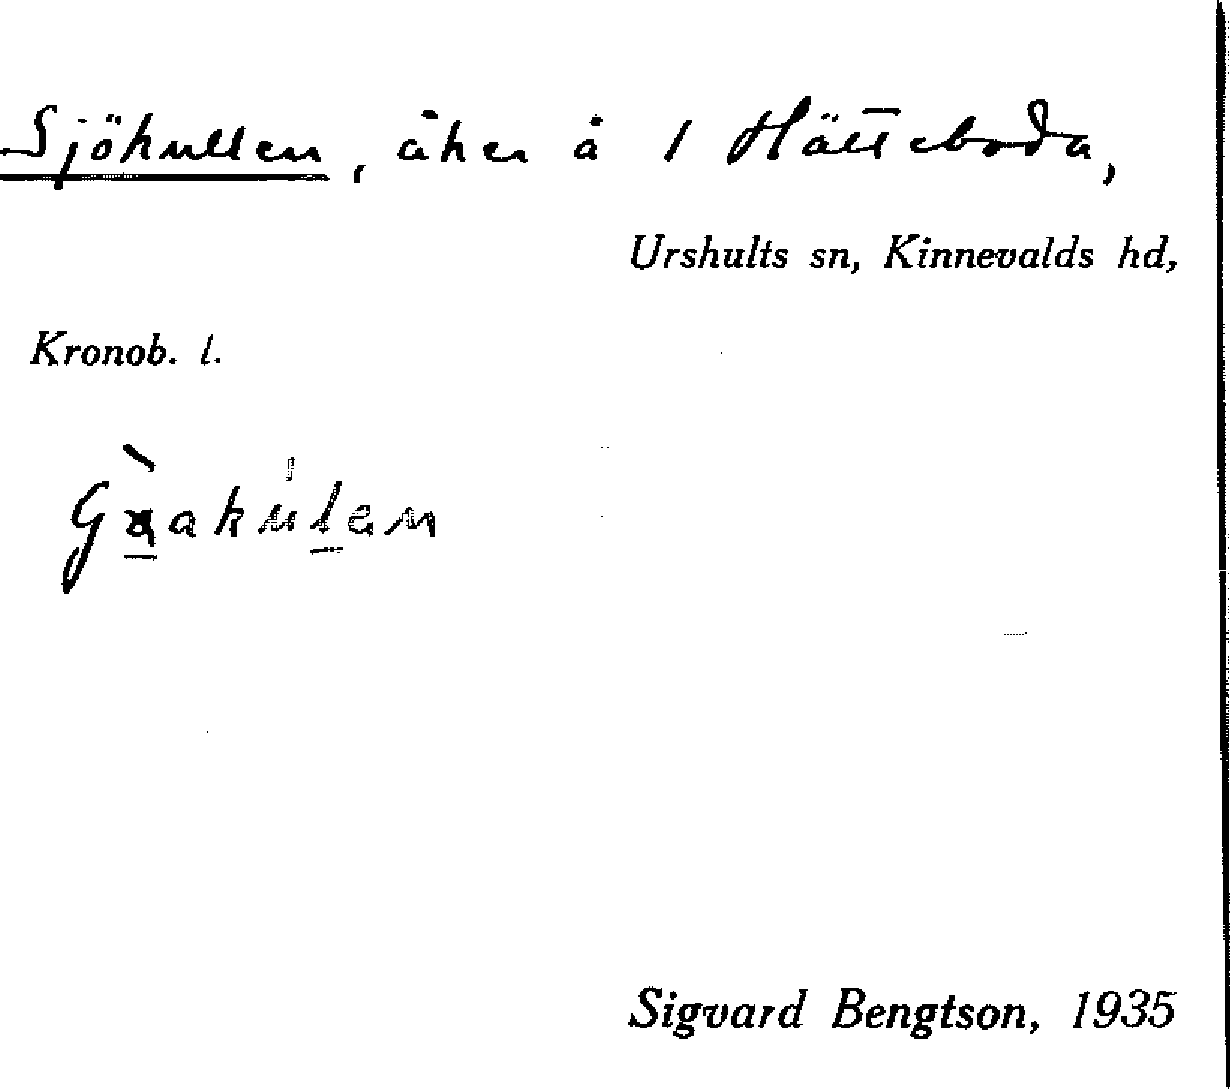 Sjökullen, åker å 1 Hätteboda,
Urshults sn, Kinnevalds hd,
Kronob. l.
Sigvard Bengtson, 1935